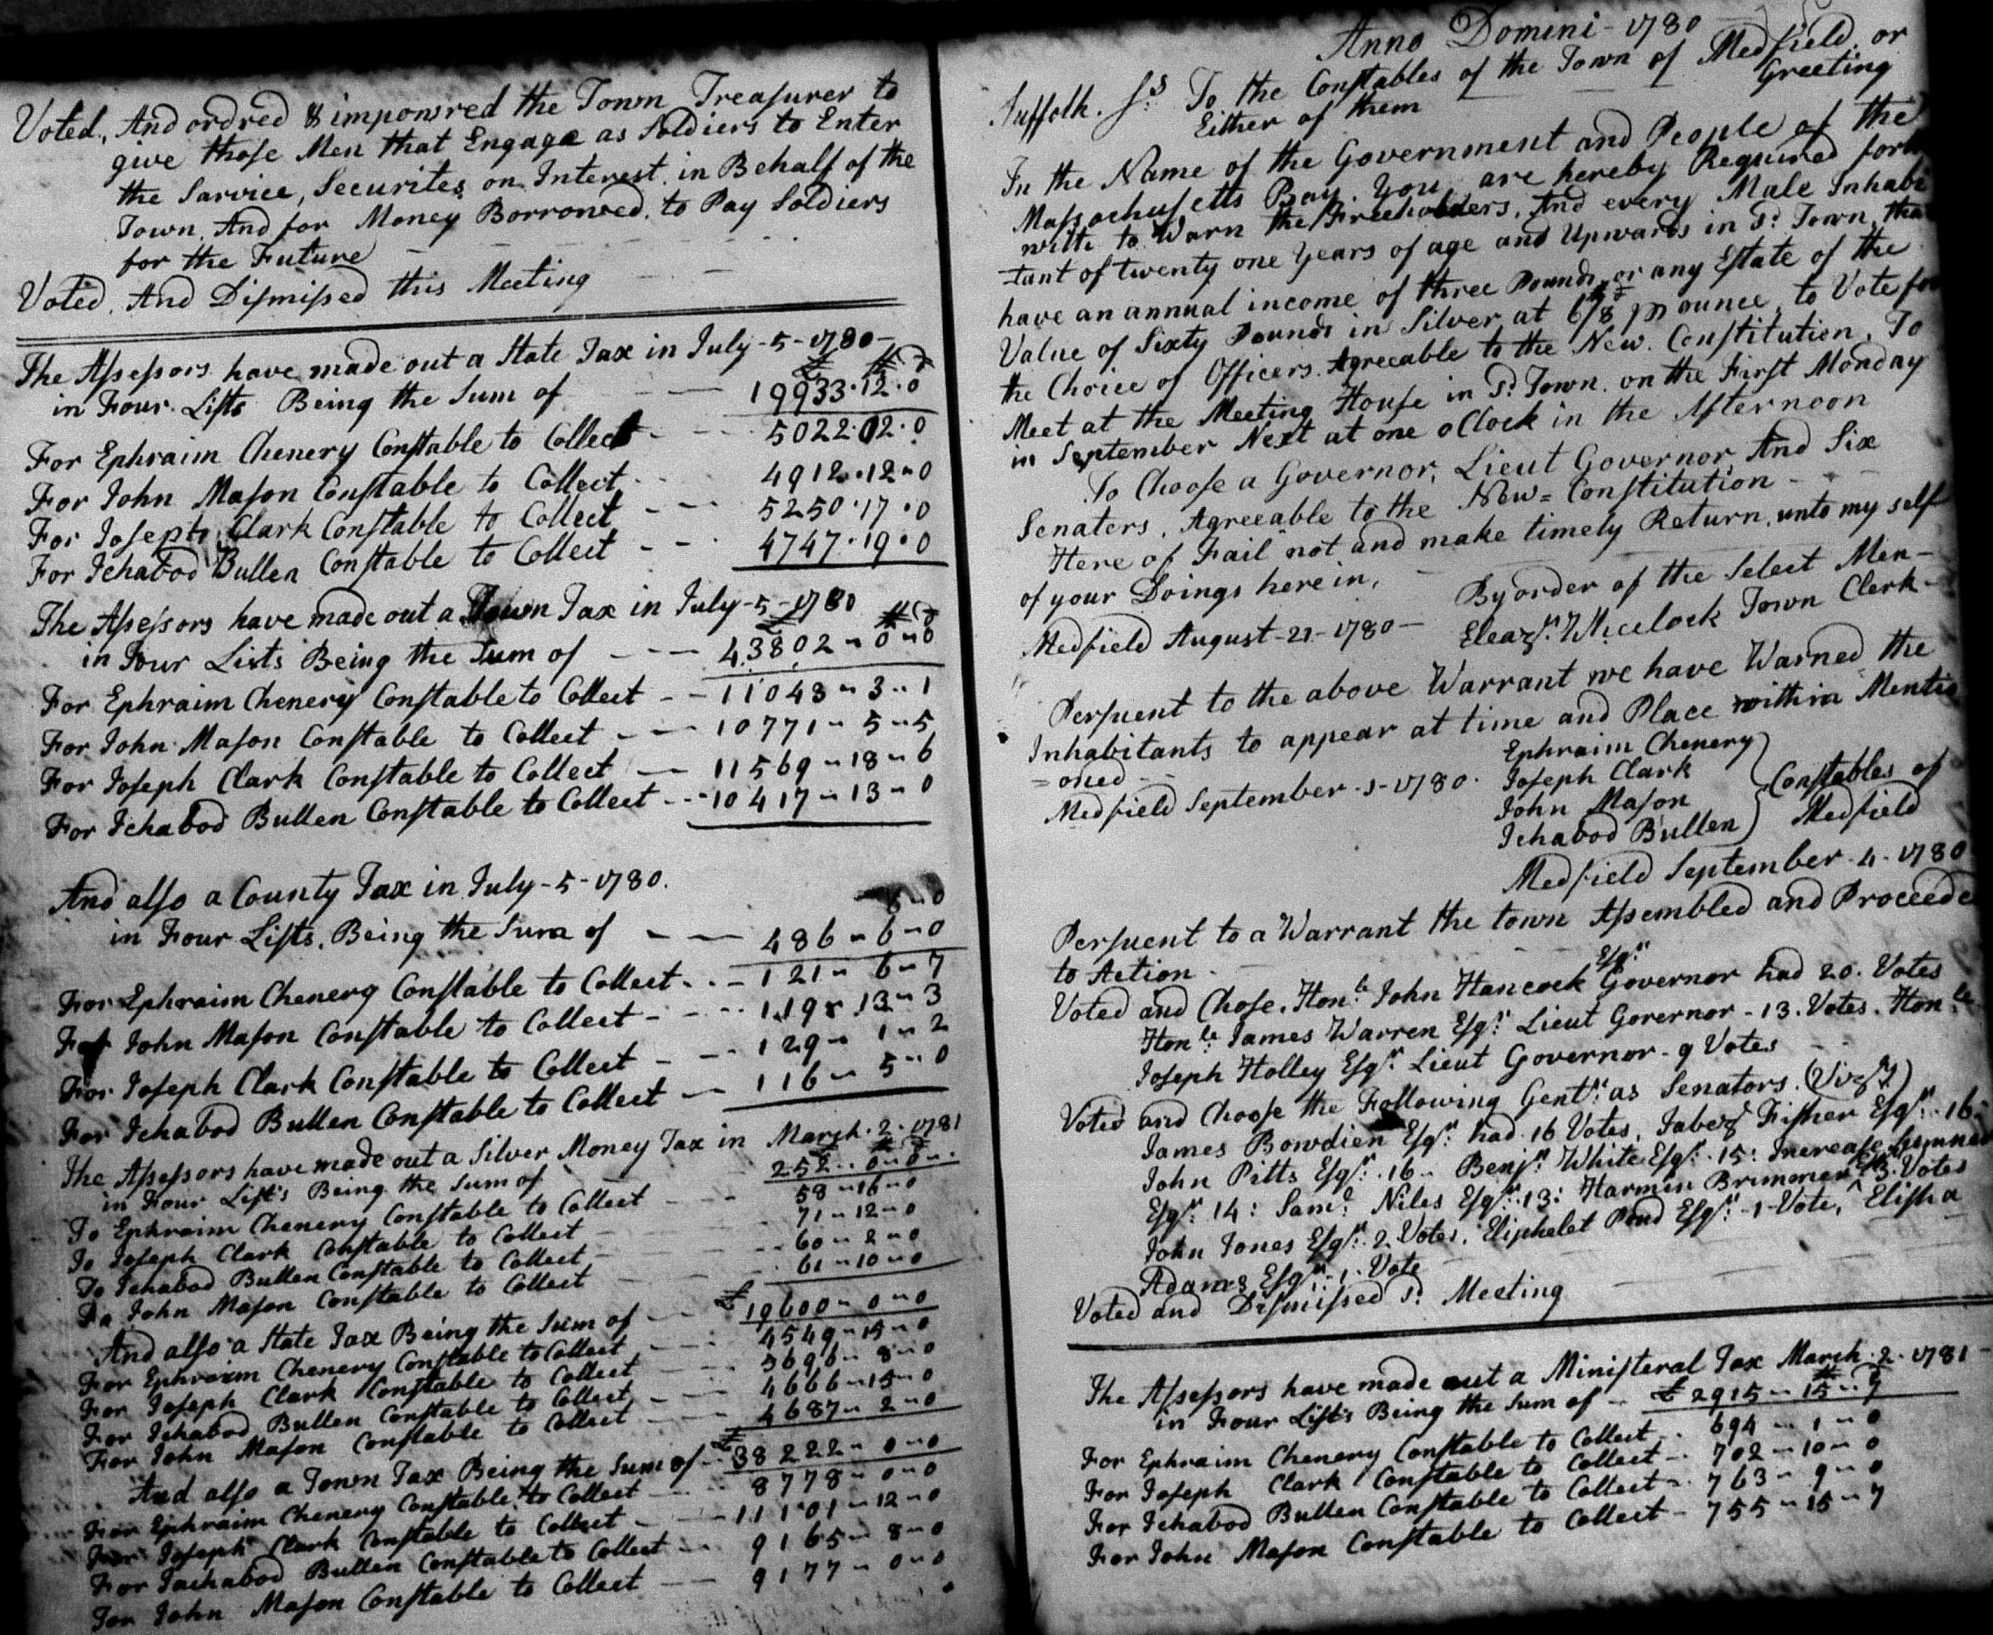 Voted, And ordred & impowred the Town Treasurer to
give those Men that Engage as Soldiers to Enter
the Sarvice, Securites on Interest in Behalf of the
Town, And for Money Borrowed to Pay Soldiers
for the Future
Voted, And Dismissed this Meeting
The Assessors have made out a State Tax in July - 5 - 1780 -
in Four Lists Being the Sum of 19933 . 12 . 0
For Ephraim Chenery Constable to Collect 5022 . 02 . 0
For John Mason Constable to Collect 4912 . 12 - 0
For Joseph Clark Constable to Collect 5250 . 17 . 0
For Ichabod Bullen Constable to Collect 4747 . 19 . 0
The Assessors have made out a Town Tax in July - 5 - 1780
in Four Lists Being the Sum of 43802 - 0 - 0
For Ephraim Chenery Constable to Collect 11043 - 3 - 1
For John Mason Constable to Collect 10771 - 5 - 5
For Joseph Clark Constable to Collect 11569 - 18 - 6
For Ichabod Bullen Constable to Collect 10417 - 13 - 0
And also a County Tax in July - 5 - 1780.
in Four Lists, Being the Sum of 486 - 6 - 0
For Ephraim Chenery Constable to Collect 121 - 6 - 7
For John Mason Constable to Collect 119 - 13 - 3
For Joseph Clark Constable to Collect 129 - 1 - 2
For Ichabod Bullen Constable to Collect 116 - 5 - 0
The Assessors have made out a Silver Money Tax in March . 2 . 1781
in Four List's Being the Sum of 252 - 0 - 0
To Ephraim Chenery Constable to Collect 58 - 16 - 0
To Joseph Clark Constable to Collect 71 - 12 - 0
To Ichabod Bullen Constable to Collect 60 - 2 - 0
To John Mason Constable to Collect 61 - 10 - 0
And also a State Tax Being the Sum of £19600 - 0 - 0
For Ephraim Chenery Constable to Collect 4549 - 15 - 0
For Joseph Clark Constable to Collect 5696 - 8 - 0
For Ichabod Bullen Constable to Collect 4666 - 15 - 0
For John Mason Constable to Collect 4687 - 2 - 0
And also a Town Tax Being the Sum of £38222 - 0 - 0
For Ephraim Chenery Constable to Collect 8778 - 0 - 0
For Joseph Clark Constable to Collect 11101 - 12 - 0
For Iachabod Bullen Constable to Collect 9165 - 8 - 0
For John Mason Constable to Collect 9177 - 0 - 0
Anno Domini - 1780
Suffolk. Ss To the Constables of the Town of Medfield or
Either of them Greeting
In the Name of the Government and People of the
Massachusetts Bay. You are hereby Required forth
with to Warn the Freeholders, And every Male Inhabi
-tant of twenty one Years of age and Upwards in Sd. Town, that
have an annual income of three Pounds, or any Estate of the
Value of Sixty Pounds in Silver at 6/8 pr ounce, to Vote for
the Choice of Officers Agreeable to the New Constitution. To
Meet at the Meeting House in Sd. Town. on the First Monday
in September Next at one o Clock in the Afternoon
To Choose a Governor, Lieut Governor, And Six
Senaters, Agreeable to the New = Constitution -
Here of Fail not and make timely Return, unto my self
of your Doings here in,
By order of the Select Men -
Medfield August - 21 - 1780 - Eleazr. Wheelock Town Clerk -
Persuent to the above Warrant we have Warned the
Inhabitants to appear at time and Place within Mentio
= oned
Ephraim Chenery
Joseph Clark
John Mason
Ichabod Bullen
Constables of
Medfield
Medfield September . 1 - 1780.
Medfield September . 4 . 1780
Persuent to a Warrant the town Assembled and Proceeded
to Action -
Voted and Chose, Honle. John Hancock Esqr. Governor had 20. Votes
Honle. James Warren Esqr. Lieut Governor - 13. Votes. Honle.
Joseph Holley Esqr. Lieut Governor - 9 Votes
Voted and Choose the Following Gentn. as Senators. (Vizt)
James Bowdien Esqr. had 16 Votes, Jabez Fisher Esqr. . 16
John Pitts Esqr. . 16 - Benjn. White Esqr. . 15: Increase Sumner
Esqr. 14: Saml. Niles Esqr. . 13: Harmin Brimmer Esqr. 3. Votes
John Jones Esqr. . 2 Votes, Eliphelet Pond Esqr. - 1 - Vote, Elisha
Adams Esqr. - 1. Vote
Voted and Dismissed Sd. Meeting
The Assessors have made out a Ministeral Tax March . 2 . 1781 -
in Four List's Being the Sum of £2915 - 15 - 7
For Ephraim Chenery Constable to Collect 694 - 1 - 0
For Joseph Clark Constable to Collect 702 - 10 - 0
For Ichabod Bullen Constable to Collect 763 - 9 - 0
For John Mason Constable to Collect 755 - 15 - 7